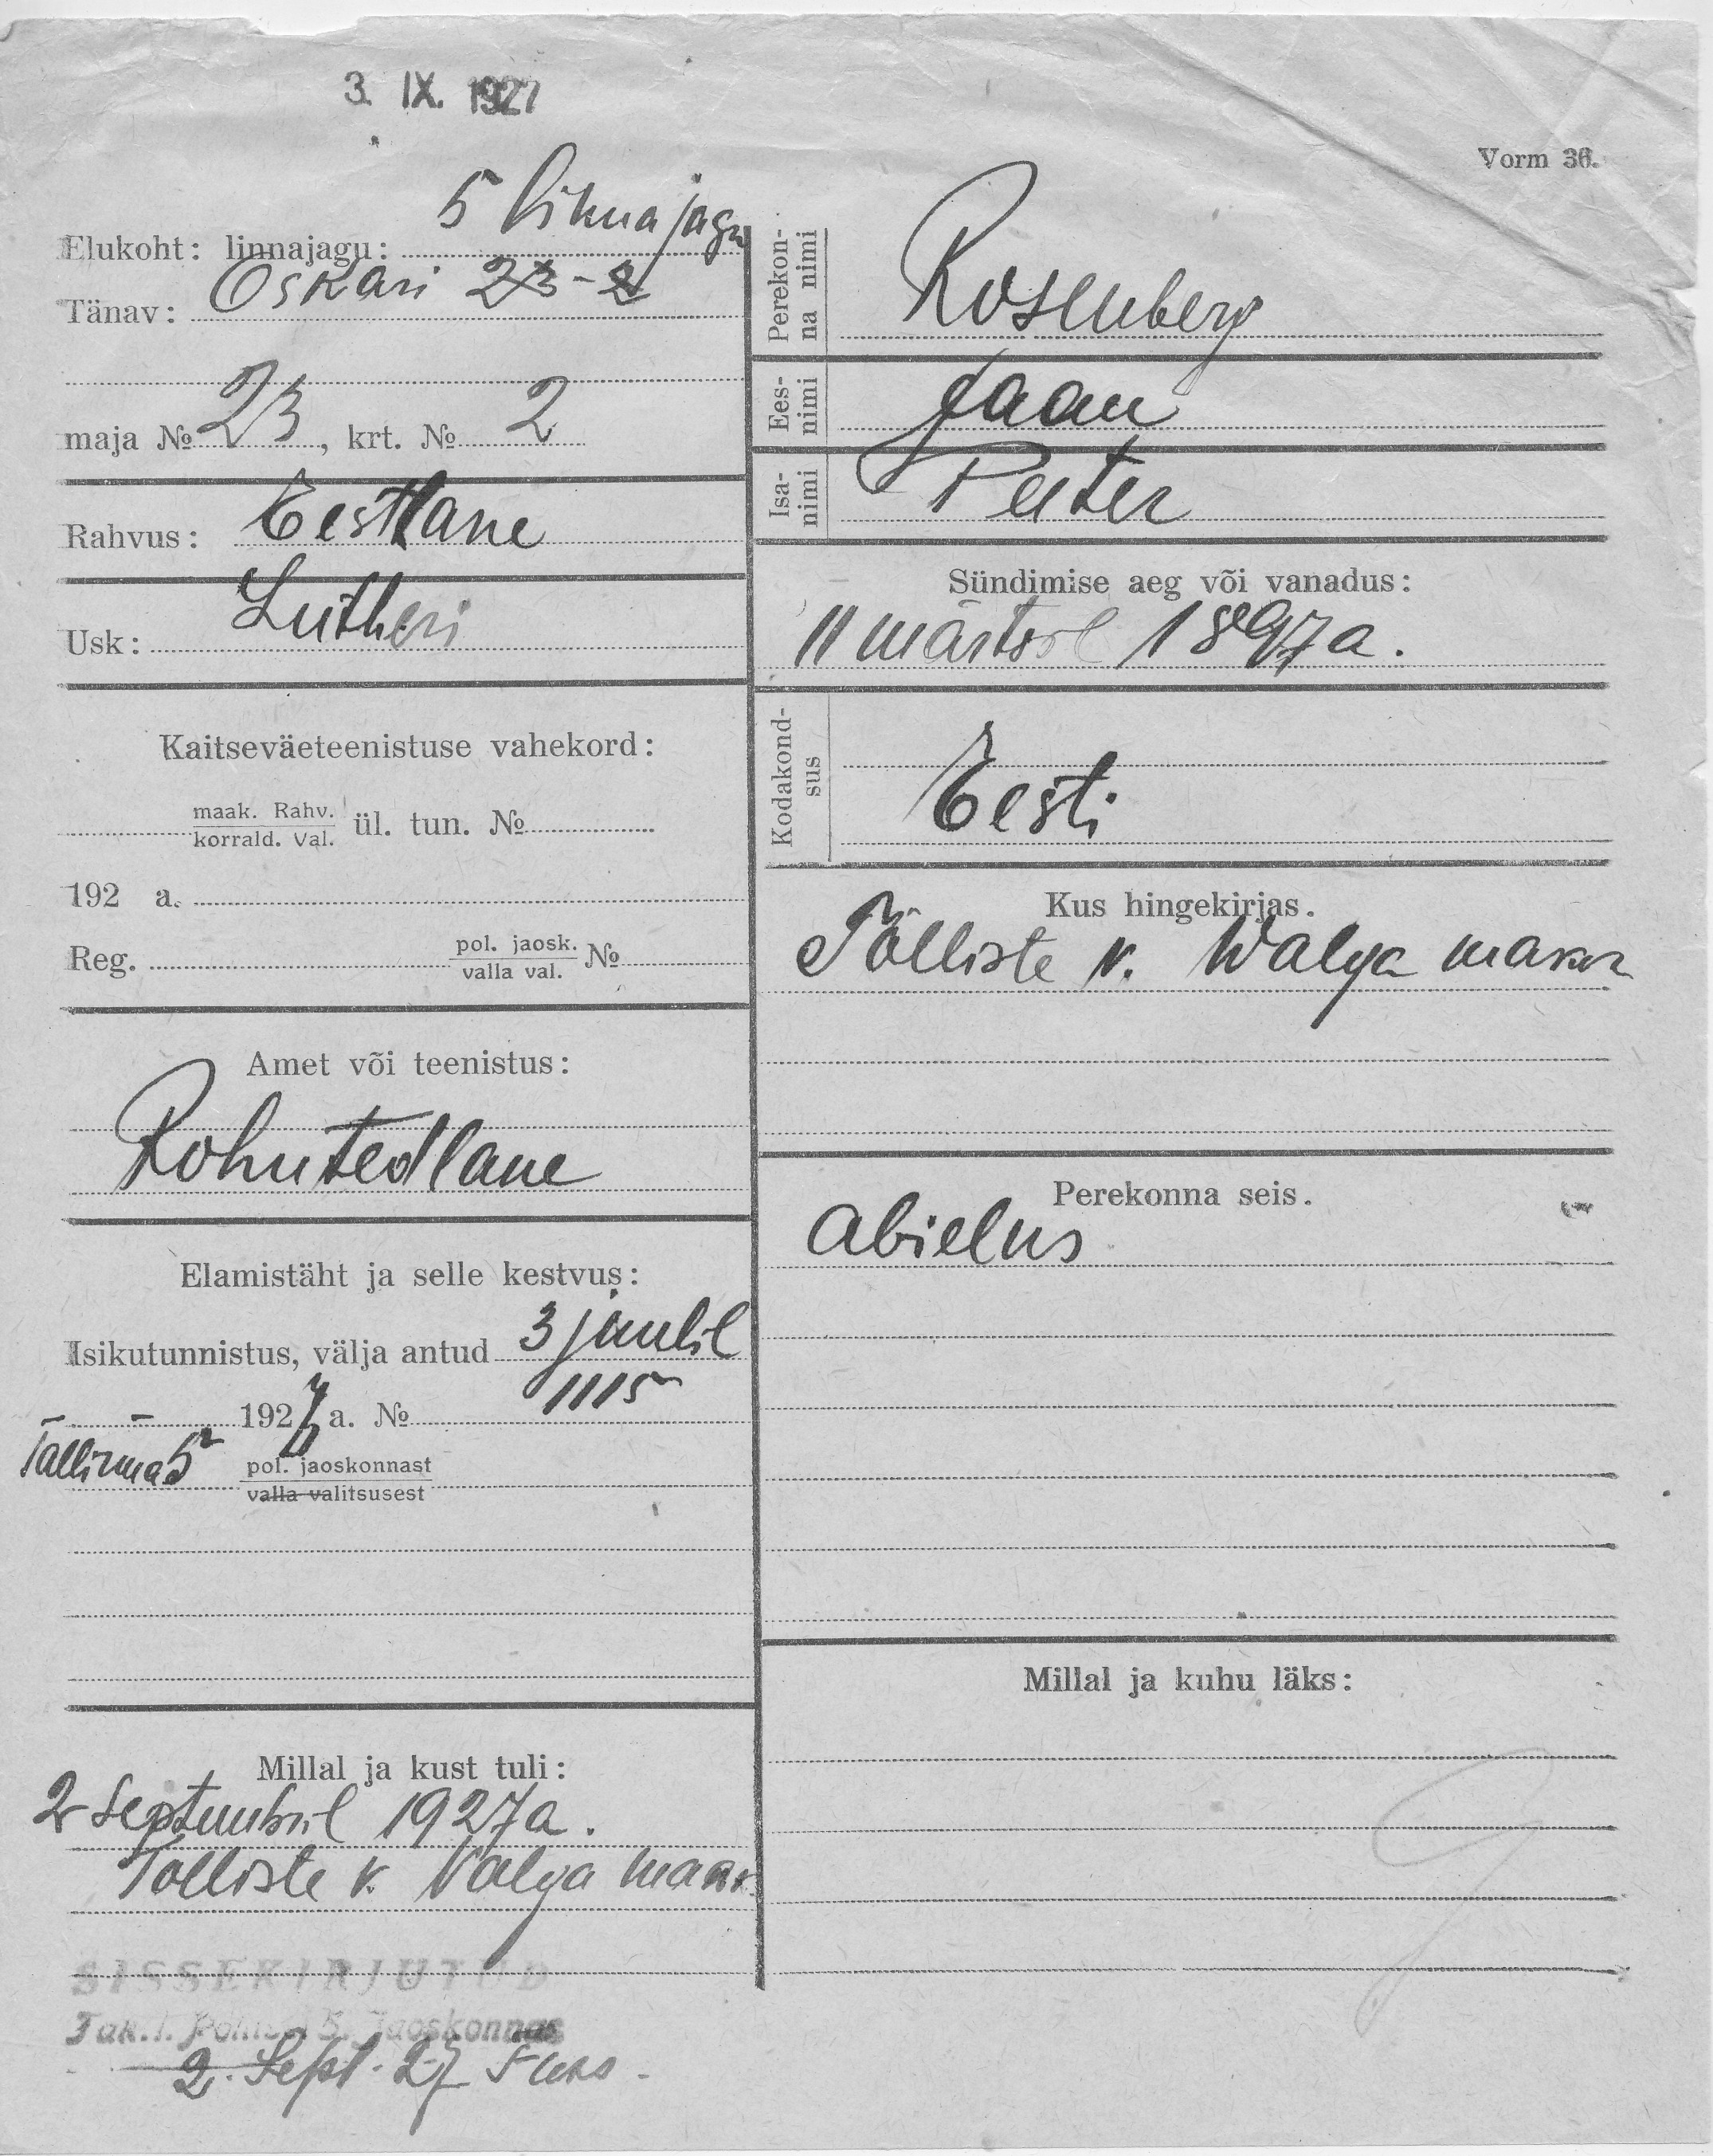 3. IX. 1927
Vorm 36.
Elukoht: linnajagu: 5 linnajagu
Tänav: Oskari 23-2
maja № 23, krt. № 2
Rahvus: Eestlane
Usk: Lutheri
Kaitseväeteenistuse vahekord:
maak. Rahv.
korrald. Val. ül. tun. №
192 a.
Reg. pol. jaosk. №
valla val.
Amet või teenistus:
Rohutedlane
Elamistäht ja selle kestvus:
Isikutunnistus, välja antud 3 juulil
1927 a. № 1115
Tallinna 5 pol. jaoskonnast
valla valitsusest
Millal ja kust tuli:
2 Septembril 1927 a.
Tolliste v. Valga maak.
SISSEKIRJUTUD
5. Jaoskonnas
2. Sept. 27
Perekon-
na nimi
Rosenberg
Ees-
nimi
Jaan
Isa-
nimi
Peeter
Sündimise aeg või vanadus:
11 märtsil 1897 a.
Kodakond-
sus
Eesti
Kus hingekirjas.
Tõlliste v. Walga maak
Perekonna seis.
abielus
Millal ja kuhu läks: